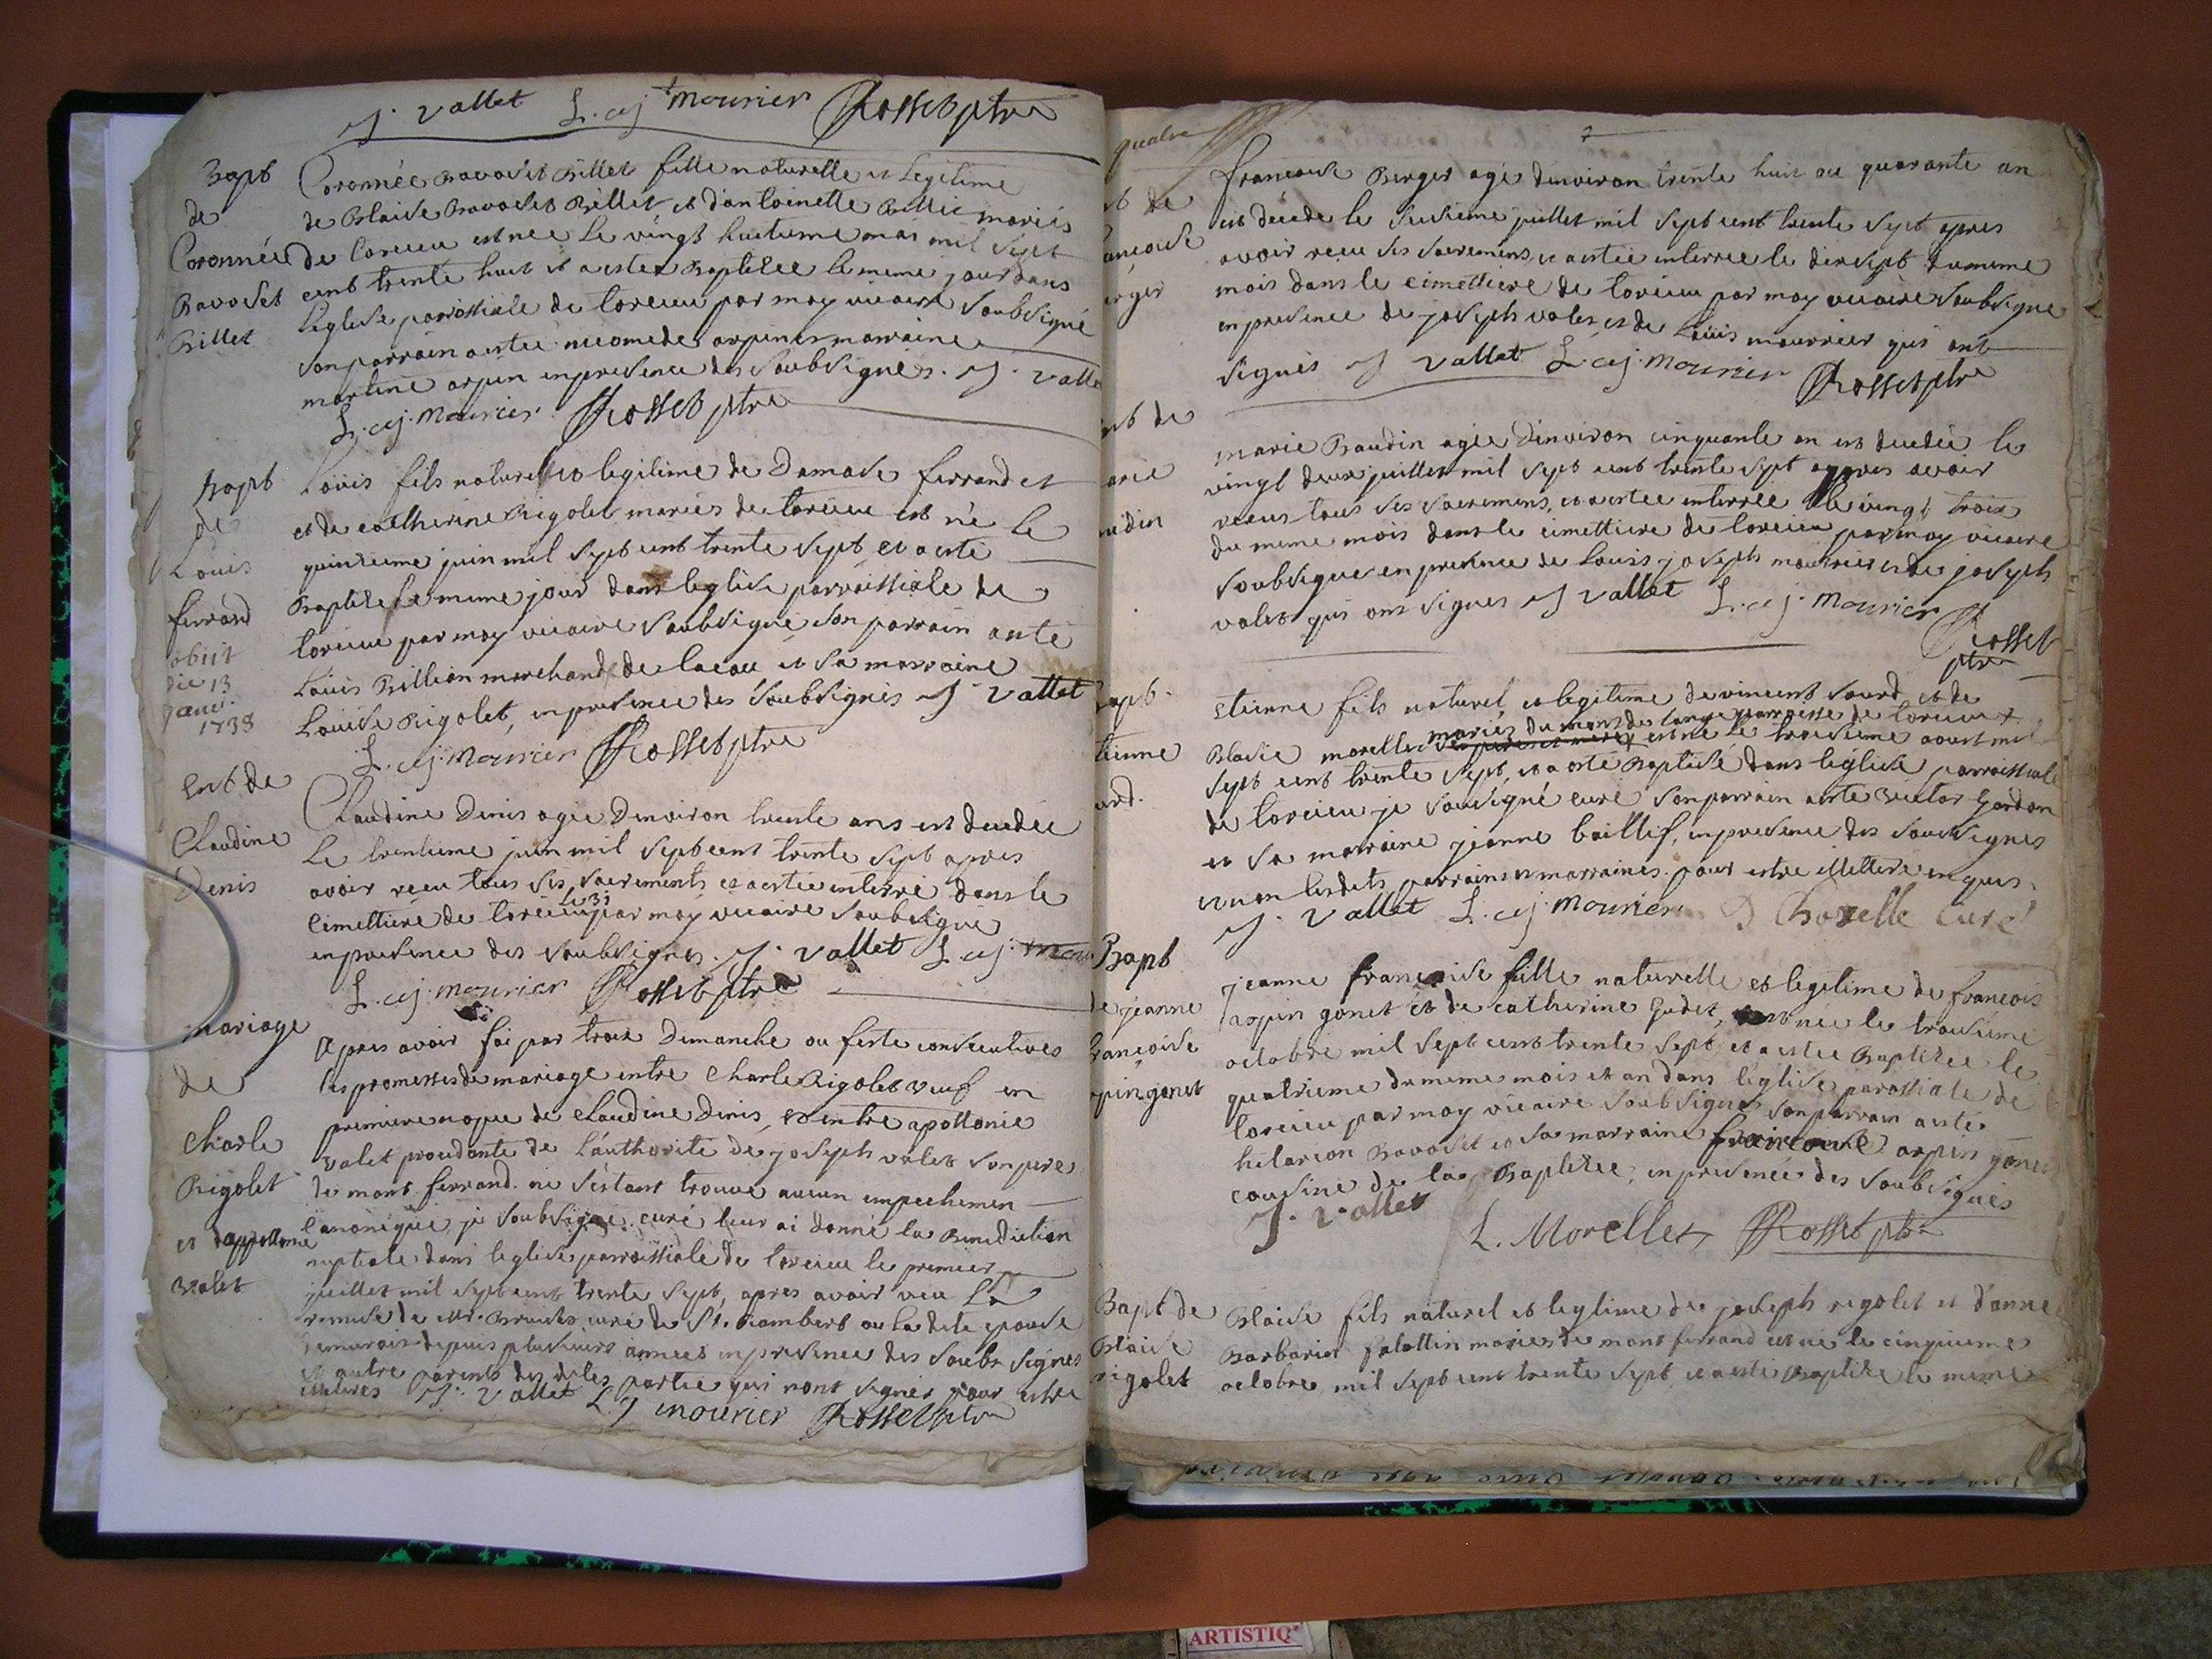 J. Vallet L. cej. Mourier Rosset ptre
Bapt
de
Coronnée
Bavoset
Billet
Coronnée Bavoset Billet fille naturelle et Legitime
de Blaise Bavoset Billet et dantoinette mariés
de Lorcieu est nee Le vingt huitieme mil sept
cent trente huit et a estez Baptizee le meme jour dans
leglise parroissiale de lorcieu par moy vicaire Soubsigné
son parrain aesté nicomede arpin et marraine
martine arpin en presence des Soubsignes. J. Valle
L. cej. Mourier Rosset ptre
Bapt
de
Louis
ferrand
obiit
die 13
janv.
1738
Louis fils naturel et legitime de Damase ferrand et
et de catherine Rigolet mariés de lorcieu est né Le
quinzieme juin mil sept cent trente sept et a esté
Baptize le meme jour dans leglise parroissiale de
lorcieu par moy vicaire Soubsigné son parrain a esté
Louis Billion marchand de et sa marraine
Louise Rigolet, en presence des Soubsignés J. Vallet
L. cej. Mourier Rosset ptre
Ent. de
Claudine
Denis
Claudine Denis agée Denviron trente ans est decedée
Le trentieme juin mil sept cent trente sept apres
avoir receu tous ses sacrements et a estée enterré dans le
le 31
cimettiere de lorcieu par moy vicaire Soubsigné
en presence des soubsignes. J. Vallet L. cej.
L. cej. mourier Rosset ptre
mariage
de
Charle
Rigolet
et dappollonie
Valet
Apres avoir fai par trois Dimanche ou feste consecutives
les promesses de mariage entre Charle Rigolet veuf en
premiere nopce de claudine Denis, et entre apollonie
valet procedante de Lauthorite de joseph valet son pere
de mont ferrand. ne sestant trouve aucun empechemen
canonique, je soubsigné curé leur ai donné la Benediction
nuptiale dans leglise parroissiale de lorcieu le premier
juillet mil sept cent trente sept, apres avoir veu La
remise de Mr. curé de St. Rambert ou la dite epouse
demurois depuis plusieurs années en presence des soubs signes
et autre parents des dites partie qui nont signer pour estre
illiteres J. Vallet L. J mourier Rosset ptre
quatre
nt de
ancoise
erger
francoise Berger agé denviron trente huit ou quarante an
est décédé le juillet mil sept cent trente sept apres
avoir receu ses sacremens, et a estée enterree le dixsept du meme
mois dans le cimettiere de lorcieu par moy vicaire Soubsigné
en presence de joseph valet et de Louis mourrier qui ont
signés J Vallet L. cej. Mourier Rosset ptre
nt de
arie
audin
marie Baudin agée Denviron cinquante an est decedée le
vingt deux juillet mil sept cent trente sept apres avoir
receus tous ses sacremens, et a estee enterrée le vingt trois
du meme mois dans le cimettiere de lorcieu par moy vicaire
Soubsigne en presence de Louis joseph mourrier et de joseph
valet qui ont signes J Vallet L. cej. Mourier
Rosset
ptre
Bapt.
tienne
ard.
etienne fils naturel et legitime de vincent sourd et de
mariés du mont de lange parroisse de lorcieu
Blasie morellet est né le troisieme aoust mil
sept cent trente sept, et a esté Baptisé dans leglise parroissiale
de lorcieu je Sousigné curé son parrain a esté victor Gordon
et sa marraine jeanne baillif, en presence des soussignes
et non lesdits parrains et marraines pour estre illettere enquis.
J. Vallet L. cej. Mourier Chozelle Curé
Bapt
de jeanne
francoise
arpin gonet
jeanne francoise fille naturelle et legitime de francois
arpin gonet et de catherine Gudet, est nee le troisieme
octobre mil sept cent trente sept et a estee Baptizee le
quatrieme du meme mois et an dans leglise parossiale de
lorcieu par moy vicaire soubsigné son parrain a esté
hilarion Bavoset et sa marraine francoise arpin gonet
cousine de la Baptizee, en presence des soubsignés
J. Vallet
L. Morellet Rosset ptre
Bapt de
Blaise
rigolet
Blaise fils naturel et legitime de joseph rigolet et danne
Barbariet falattin mariés de mont ferrand est né le cinquieme
octobre mil sept cent trente sept et a esté Baptize le meme
ARTISTIQ